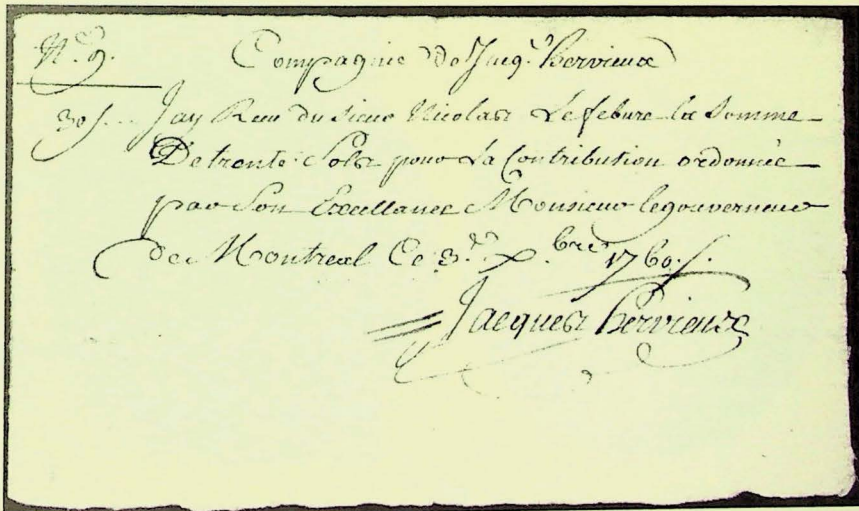 N.° 9. Compagnie de Jacq.s hervieux
30 s. Jay Recu du Sieur Nicolas Lefebvre la Somme
De trente Sols pour La Contribution ordonnée
par Son Excellance Monsieur legouverneur
de Montreal Ce 3.e Xbre 1760
Jacques hervieux